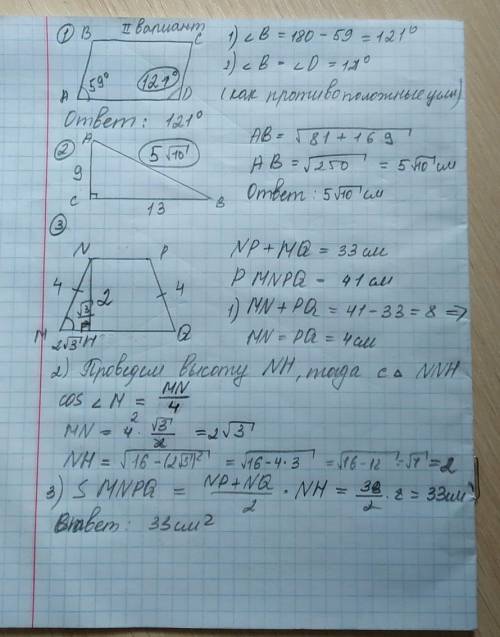 ① II вариант
B C
A 59° 121° D
1) ∠B = 180 - 59 = 121°
2) ∠B = ∠D = 121°
(как противоположные углы)
Ответ: 121°
②
A 5√10
9
C 13 B
AB = √81 + 169
AB = √250 = 5√10 см
Ответ: 5√10 см
③
N P
4 2 4
√3/2
M H Q
2√3
NP + MQ = 33 см
P MNPQ = 41 см
1) MN + PQ = 41 - 33 = 8 =>
MN = PQ = 4 см
2) Проведем высоту NH, тогда с △ NNH
cos ∠M = MN/4
MN = 4 · √3/2 = 2√3
NH = √16 - (2√3)² = √16 - 4 · 3 = √16 - 12 = √4 = 2
3) S MNPQ = NP + NQ/2 · NH = 33/2 · 2 = 33 см²
Ответ: 33 см²